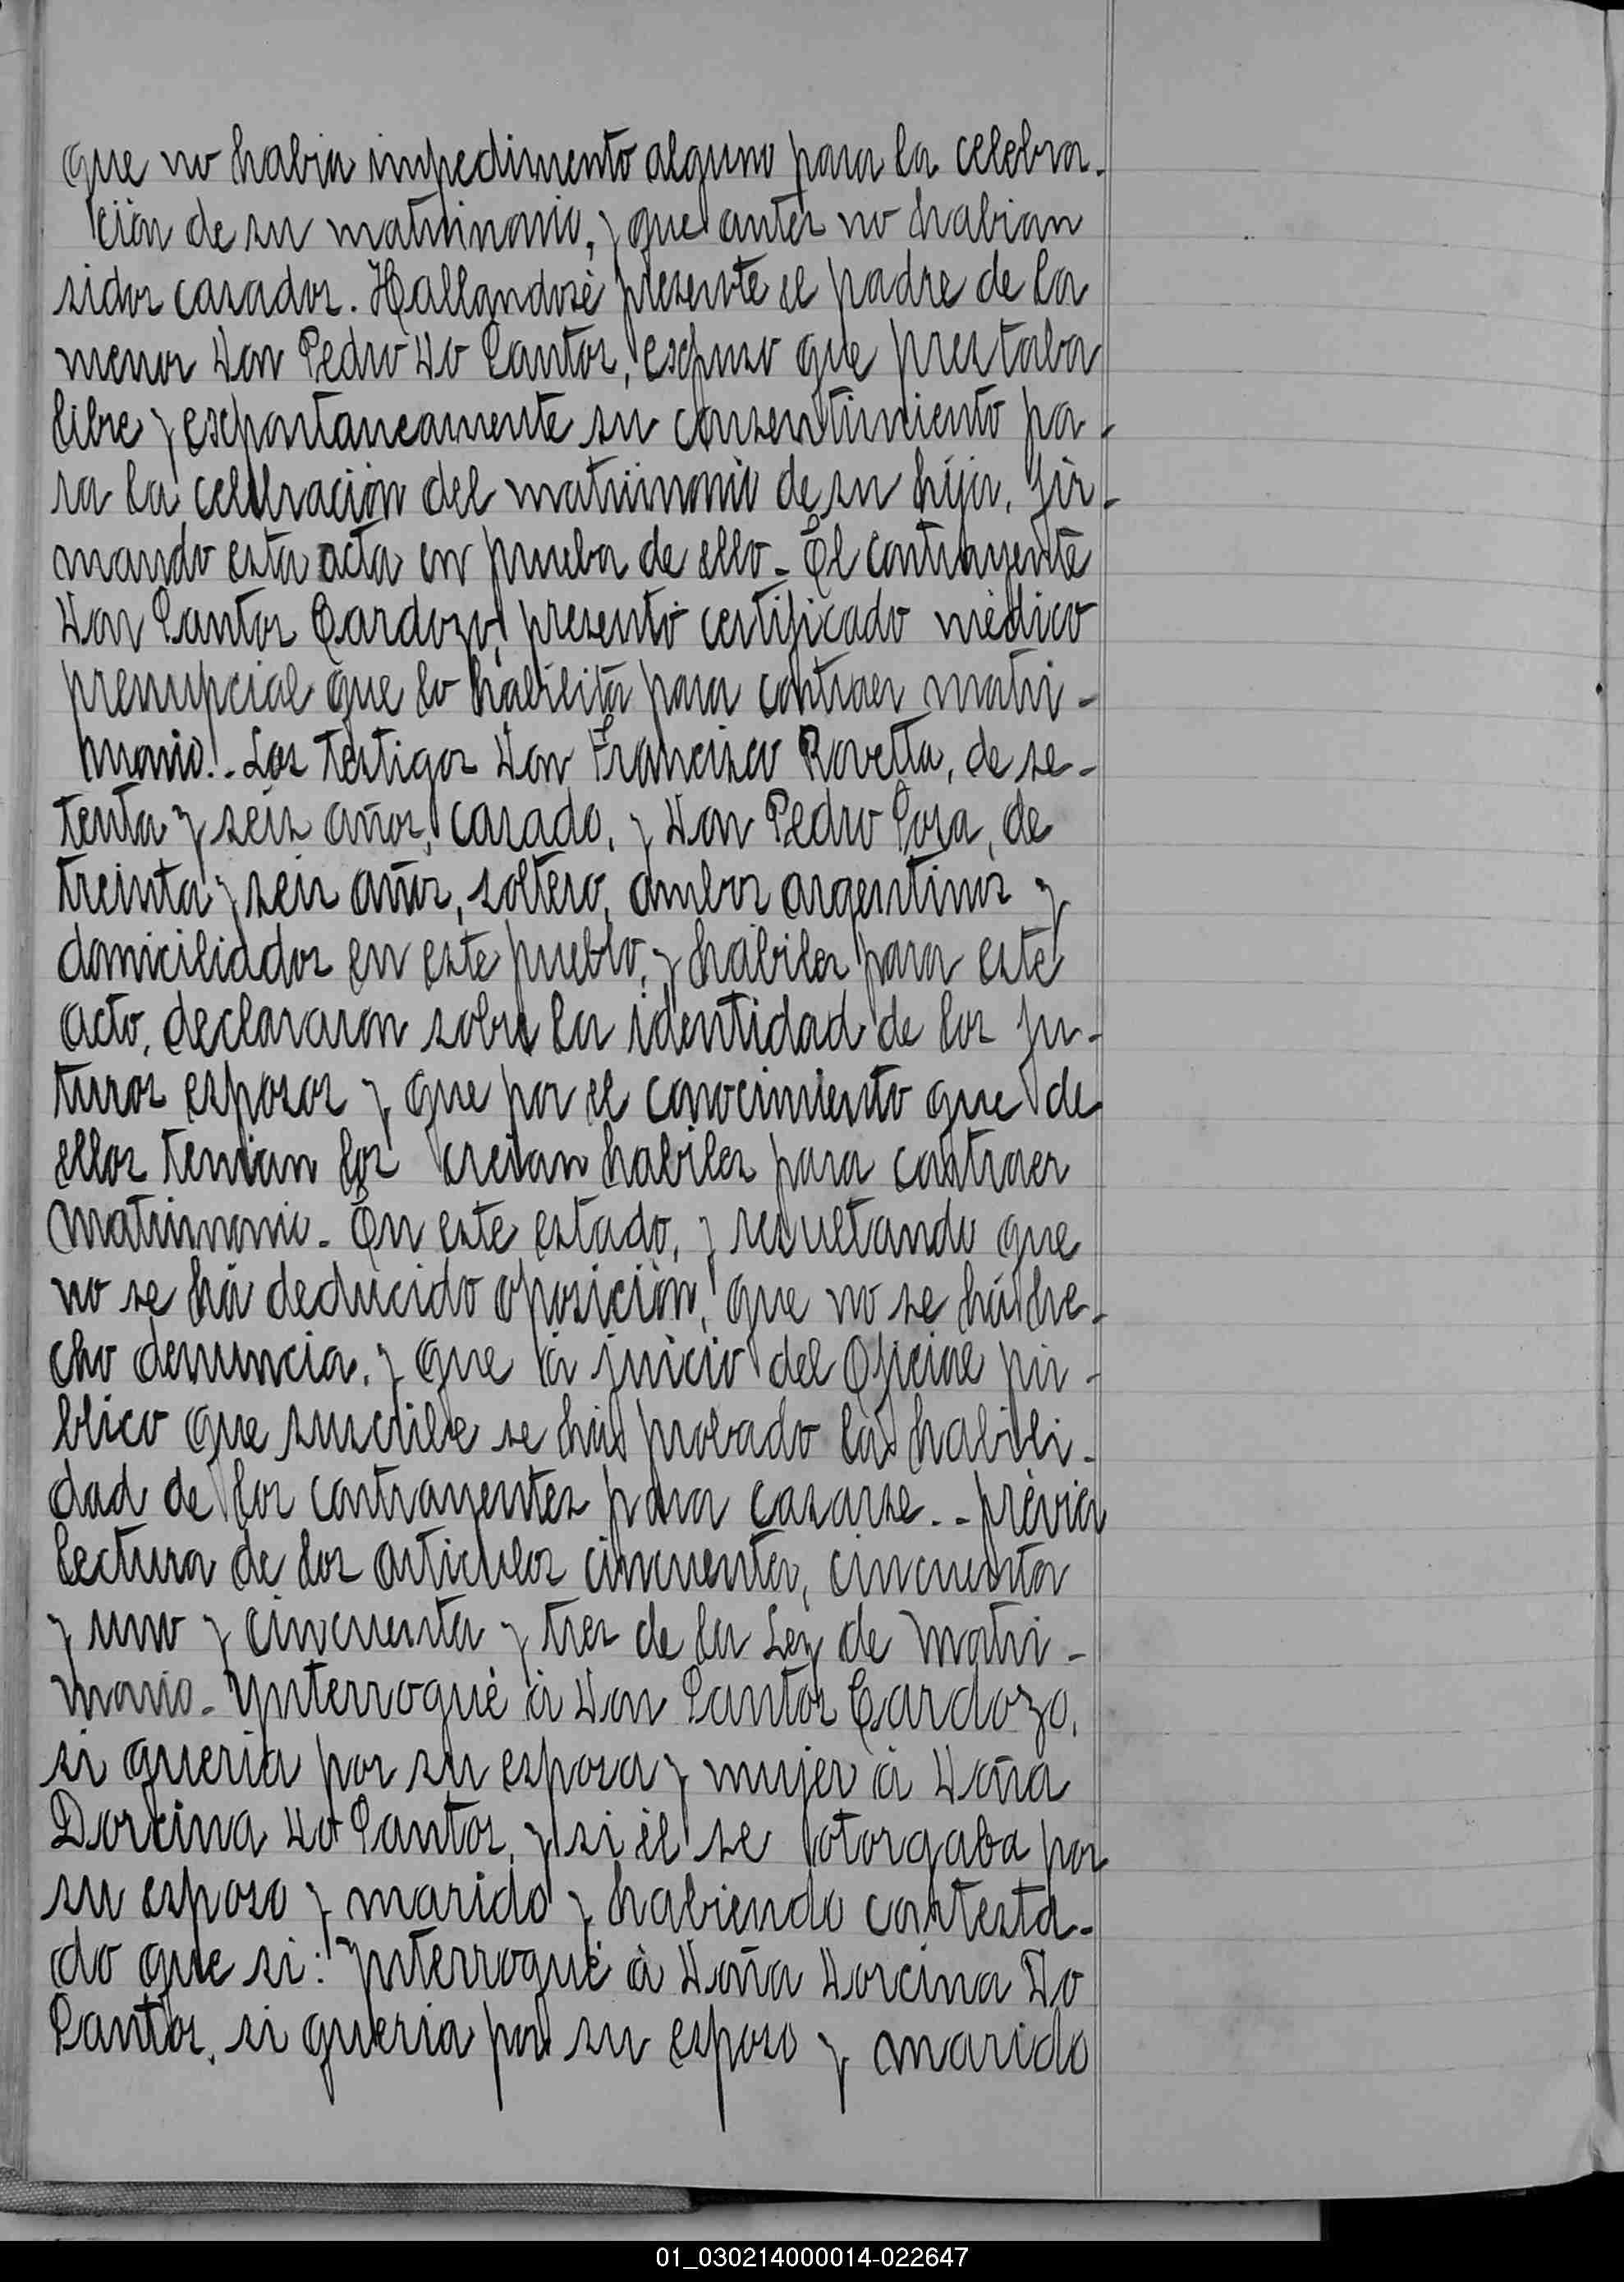 que no habia impedimento alguno para la celebra-
ción de su matrimonio, y que antes no habian
sidos casados. Hallandosé presente el padre de la
menor Don Pedro Do Santos, espuso que prestaba
libre y espontaneamente su consentimiento pa-
ra la celebración del matrimonio de su hija, fir-
mando esta acta en prueba de ello- El contrayente
Don Santos Cardozo, presentó certificado médico
prenupcial que lo habilita para contraer matri-
monio.- Los testigos Don Francisco Rovetta, de se-
tenta y seis años, casado, y Don Pedro Sosa, de
treinta y seis años, soltero, ambos argentinos y
domiciliados en este pueblo, y hábiles para este
acto, declararon sobre la identidad de los fu-
turos esposos y que por el conocimiento que de
ellos tenian los creian habiles para contraer
matrimonio- En este estado, y resultando que
no se há deducido oposición, que no se há he-
cho denuncia, y que á juicio del Oficial pú-
blico que suscribe se há probado la habili-
dad de los contrayentes para casarse.- prévia
lectura de los articulos cincuenta, cincuenta
y uno y cincuenta y tres de la Ley de Matri-
monio- Ynterrogué á Don Santos Cardozo,
si queria por su esposa y mujer á Doña
Dorcina Do Santos, y si él se otorgaba por
su esposo y marido y habiendo contesta-
do que si: Ynterrogué á Doña Dorcina Do
Santos, si queria por su esposo y marido
01_030214000014-022647